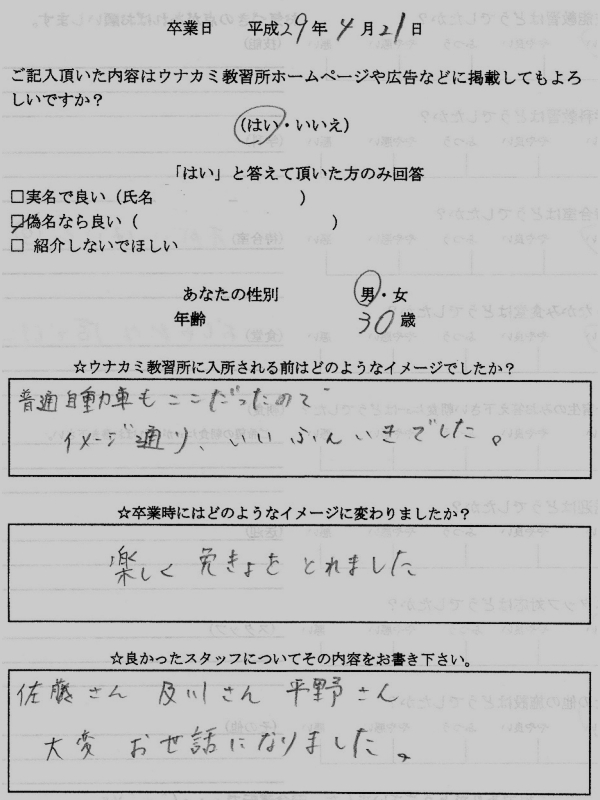 卒業日　平成29年4月21日
ご記入頂いた内容はウナカミ教習所ホームページや広告などに掲載してもよろ
しいですか？
（はい・いいえ）
「はい」と答えて頂いた方のみ回答
□実名で良い（氏名　　　　　　　　）
☑偽名なら良い（　　　　　　　　　　）
□ 紹介しないでほしい
あなたの性別　　男・女
年齢　　30歳
☆ウナカミ教習所に入所される前はどのようなイメージでしたか？
普通自動車もここだったので
イメージ通り、いいふんいきでした。
☆卒業時にはどのようなイメージに変わりましたか？
楽しく免きょをとれました
☆良かったスタッフについてその内容をお書き下さい。
佐藤さん　及川さん　平野さん
大変　おせ話になりました。